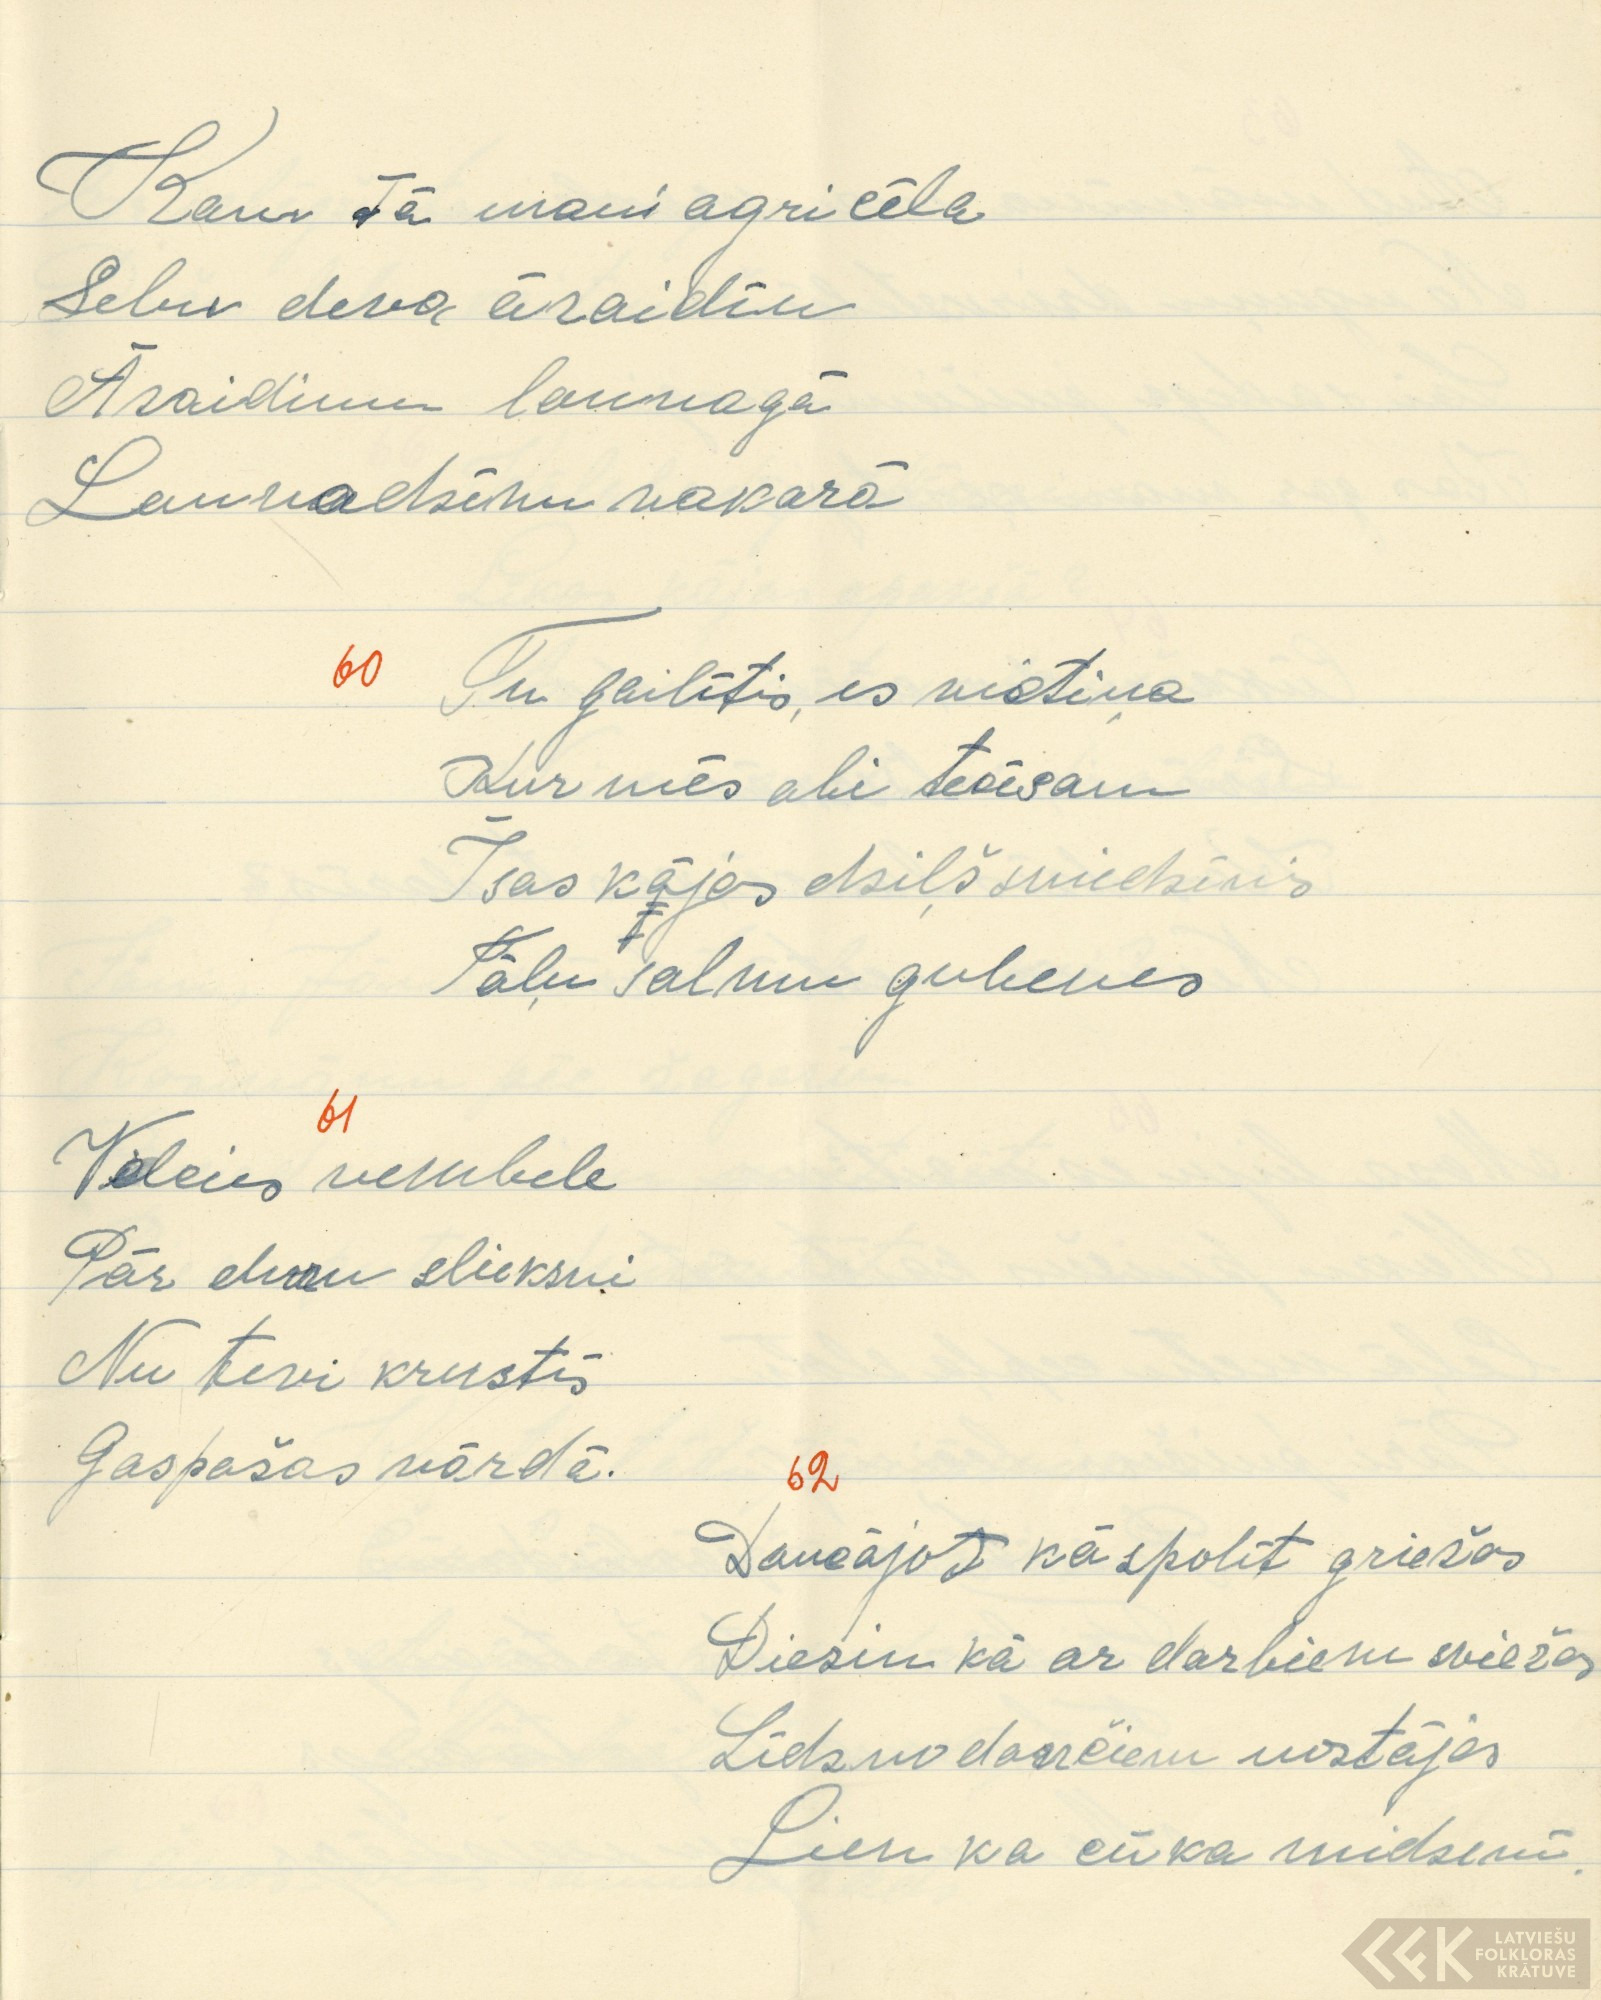 Kam tā mani agri cēla
Vēlu deva āzaidiņu
Āzaidiņu launagā
Launadziņu vakarā
60
Tu gailītis, es vistiņa
Kur mēs abi tecēsam
Īsas kājas dziļš sniedziņis
Tālu salmu gubenes
61
Velcies vembele
Pār durvu slieksni
Nu tevi krustīs
Gaspašas vārdā.
62
Dancājot kā spolīt griežas
Diezin kā ar darbiem sviežas
Līdz no dančiem nostājas
Lien ka cūka midzenī.
LATVIEŠU
FOLKLORAS
KRĀTUVE